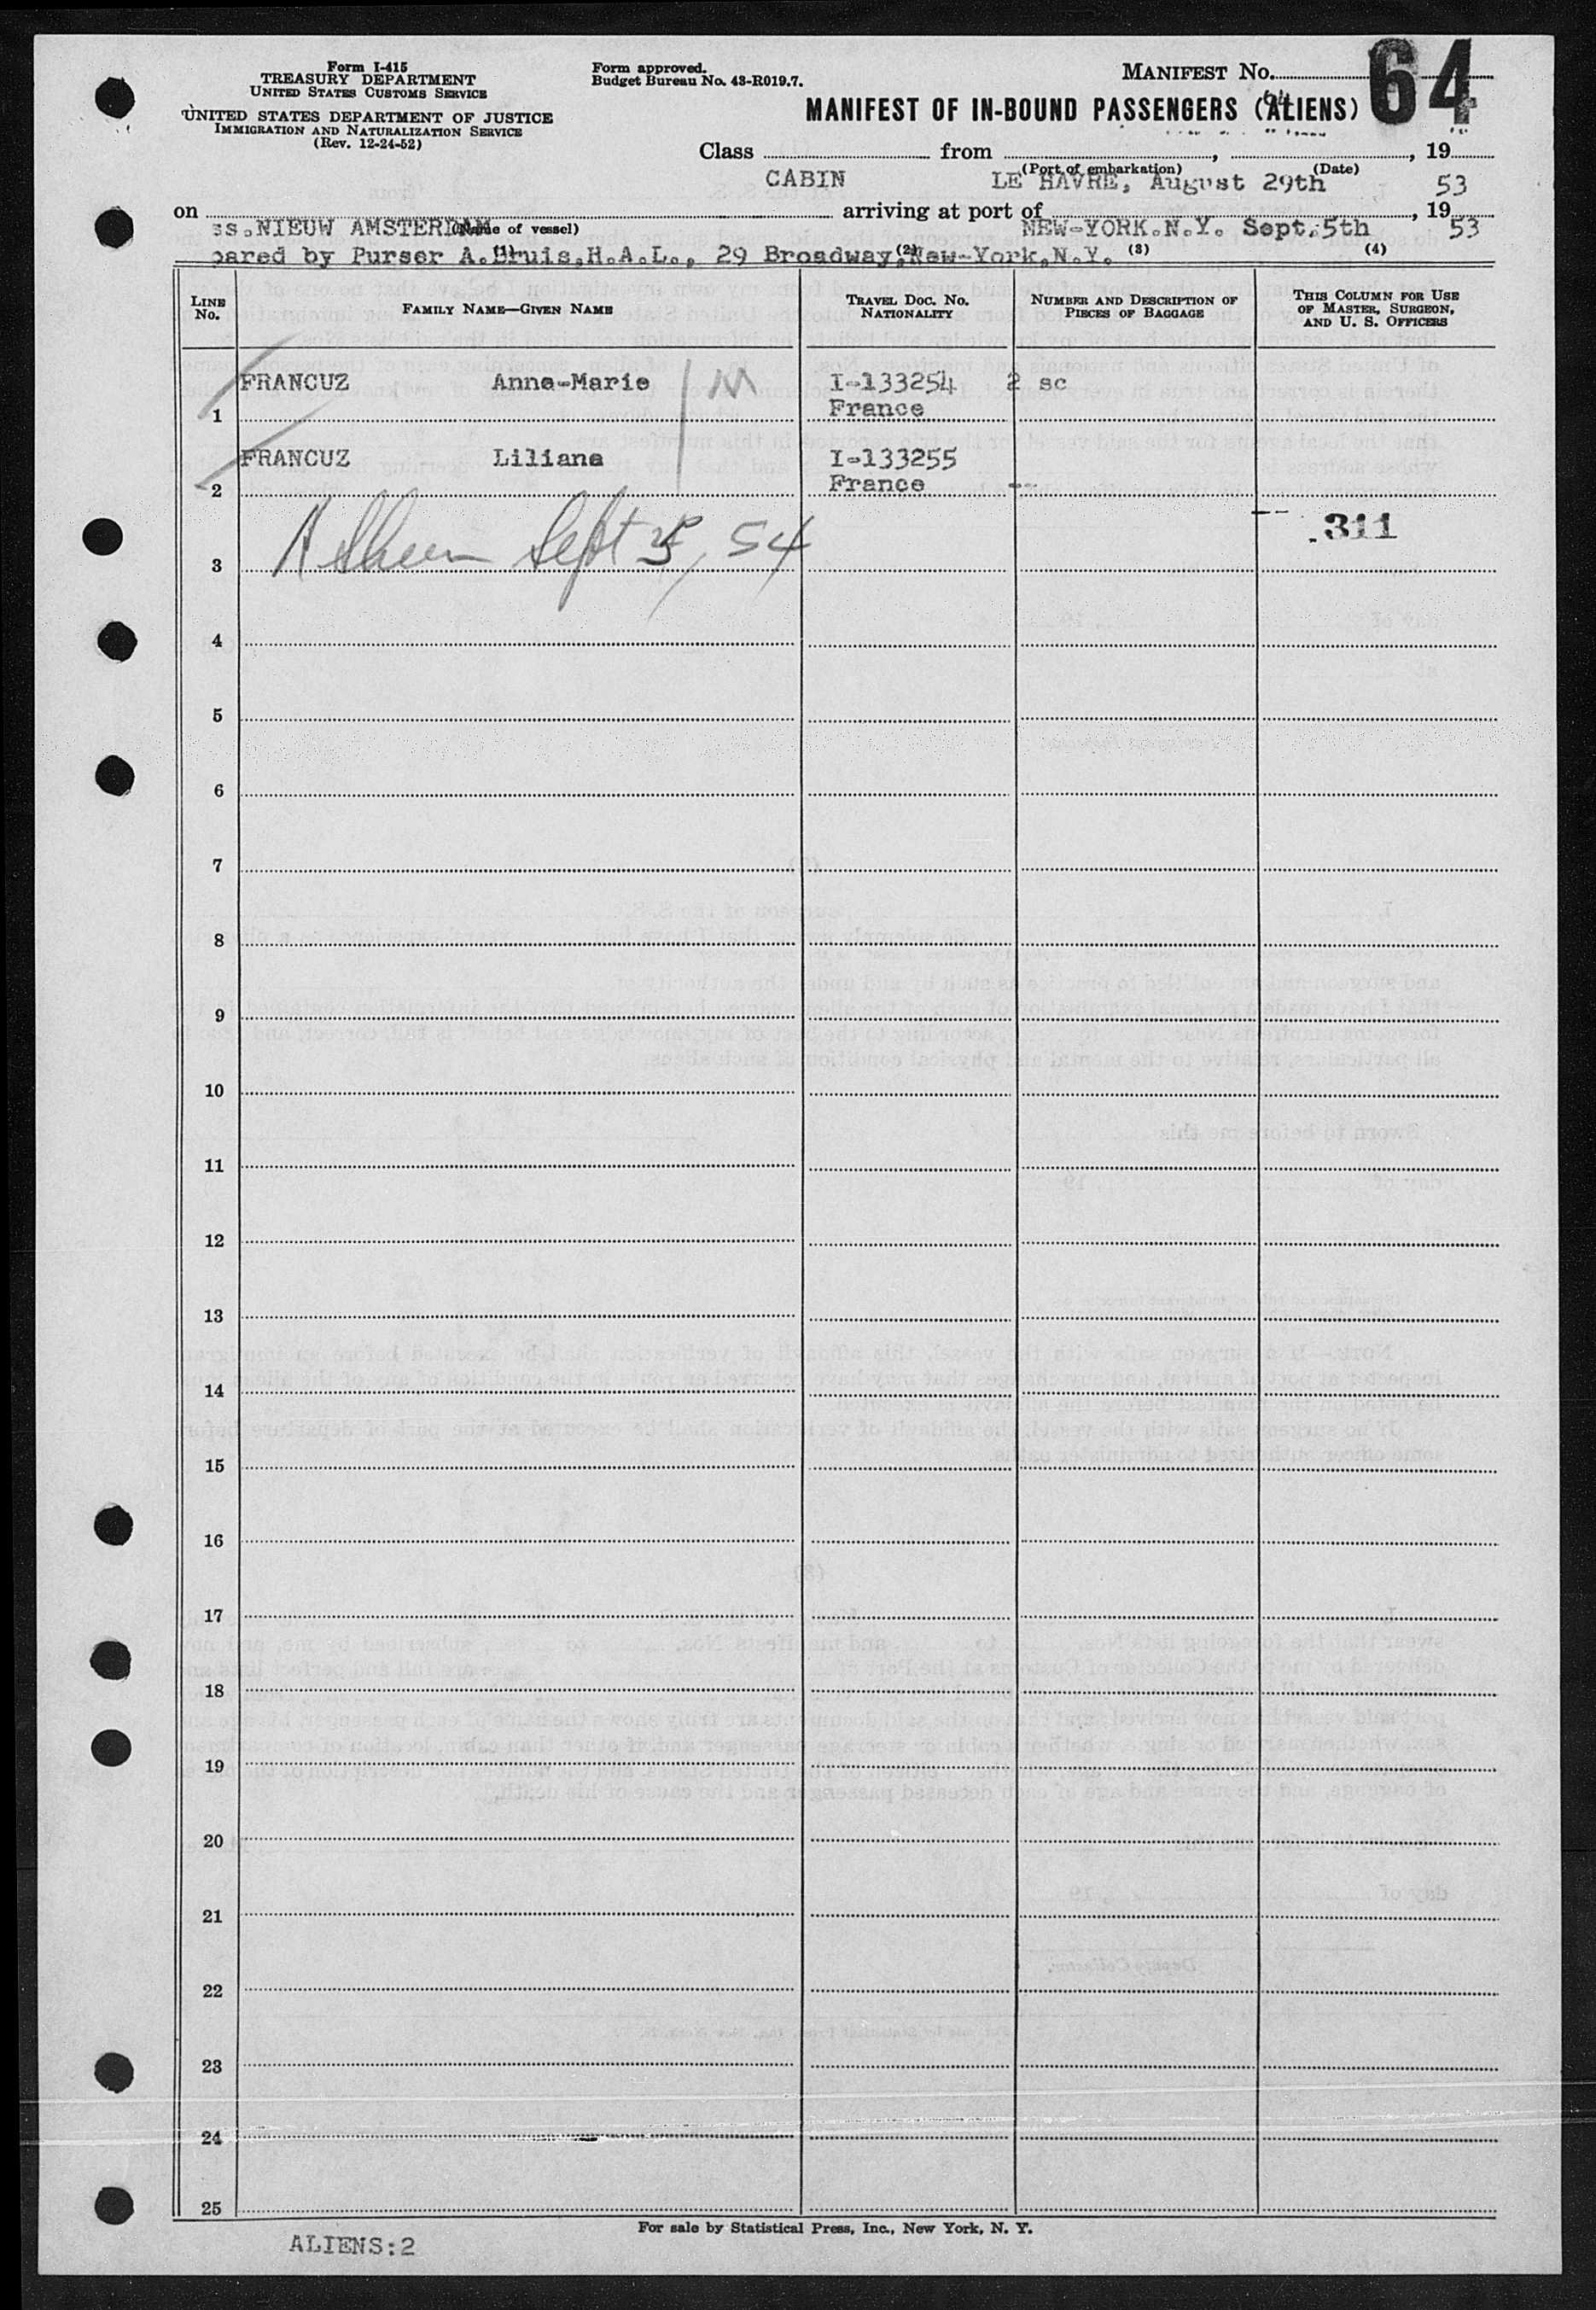 Form I-415
TREASURY DEPARTMENT
UNITED STATES CUSTOMS SERVICE
UNITED STATES DEPARTMENT OF JUSTICE
IMMIGRATION AND NATURALIZATION SERVICE
(Rev. 12-24-52)
Form approved.
Budget Bureau No. 43-R019.7.
MANIFEST NO. 64
MANIFEST OF IN-BOUND PASSENGERS (ALIENS)
Class from , , 19
(Port of embarkation) (Date)
CABIN LE HAVRE, August 29th 53
on arriving at port of , 19
ss.NIEUW AMSTERDAM (Name of vessel) NEW-YORK.N.Y. Sept.5th 53
pared by Purser A. H.A.L., 29 Broadway, New-York,N.Y.
(1) (2) (3) (4)
LINE NO.
FAMILY NAME—GIVEN NAME
TRAVEL DOC. NO. NATIONALITY
NUMBER AND DESCRIPTION OF PIECES OF BAGGAGE
THIS COLUMN FOR USE OF MASTER, SURGEON, AND U. S. OFFICERS
FRANCUZ Anna-Marie M I-133254 2 sc
1 France
FRANCUZ Liliane I-133255
2 France --
311
3 Sept 5, 54
4
5
6
7
8
9
10
11
12
13
14
15
16
17
18
19
20
21
22
23
24
25
For sale by Statistical Press, Inc., New York, N. Y.
ALIENS:2